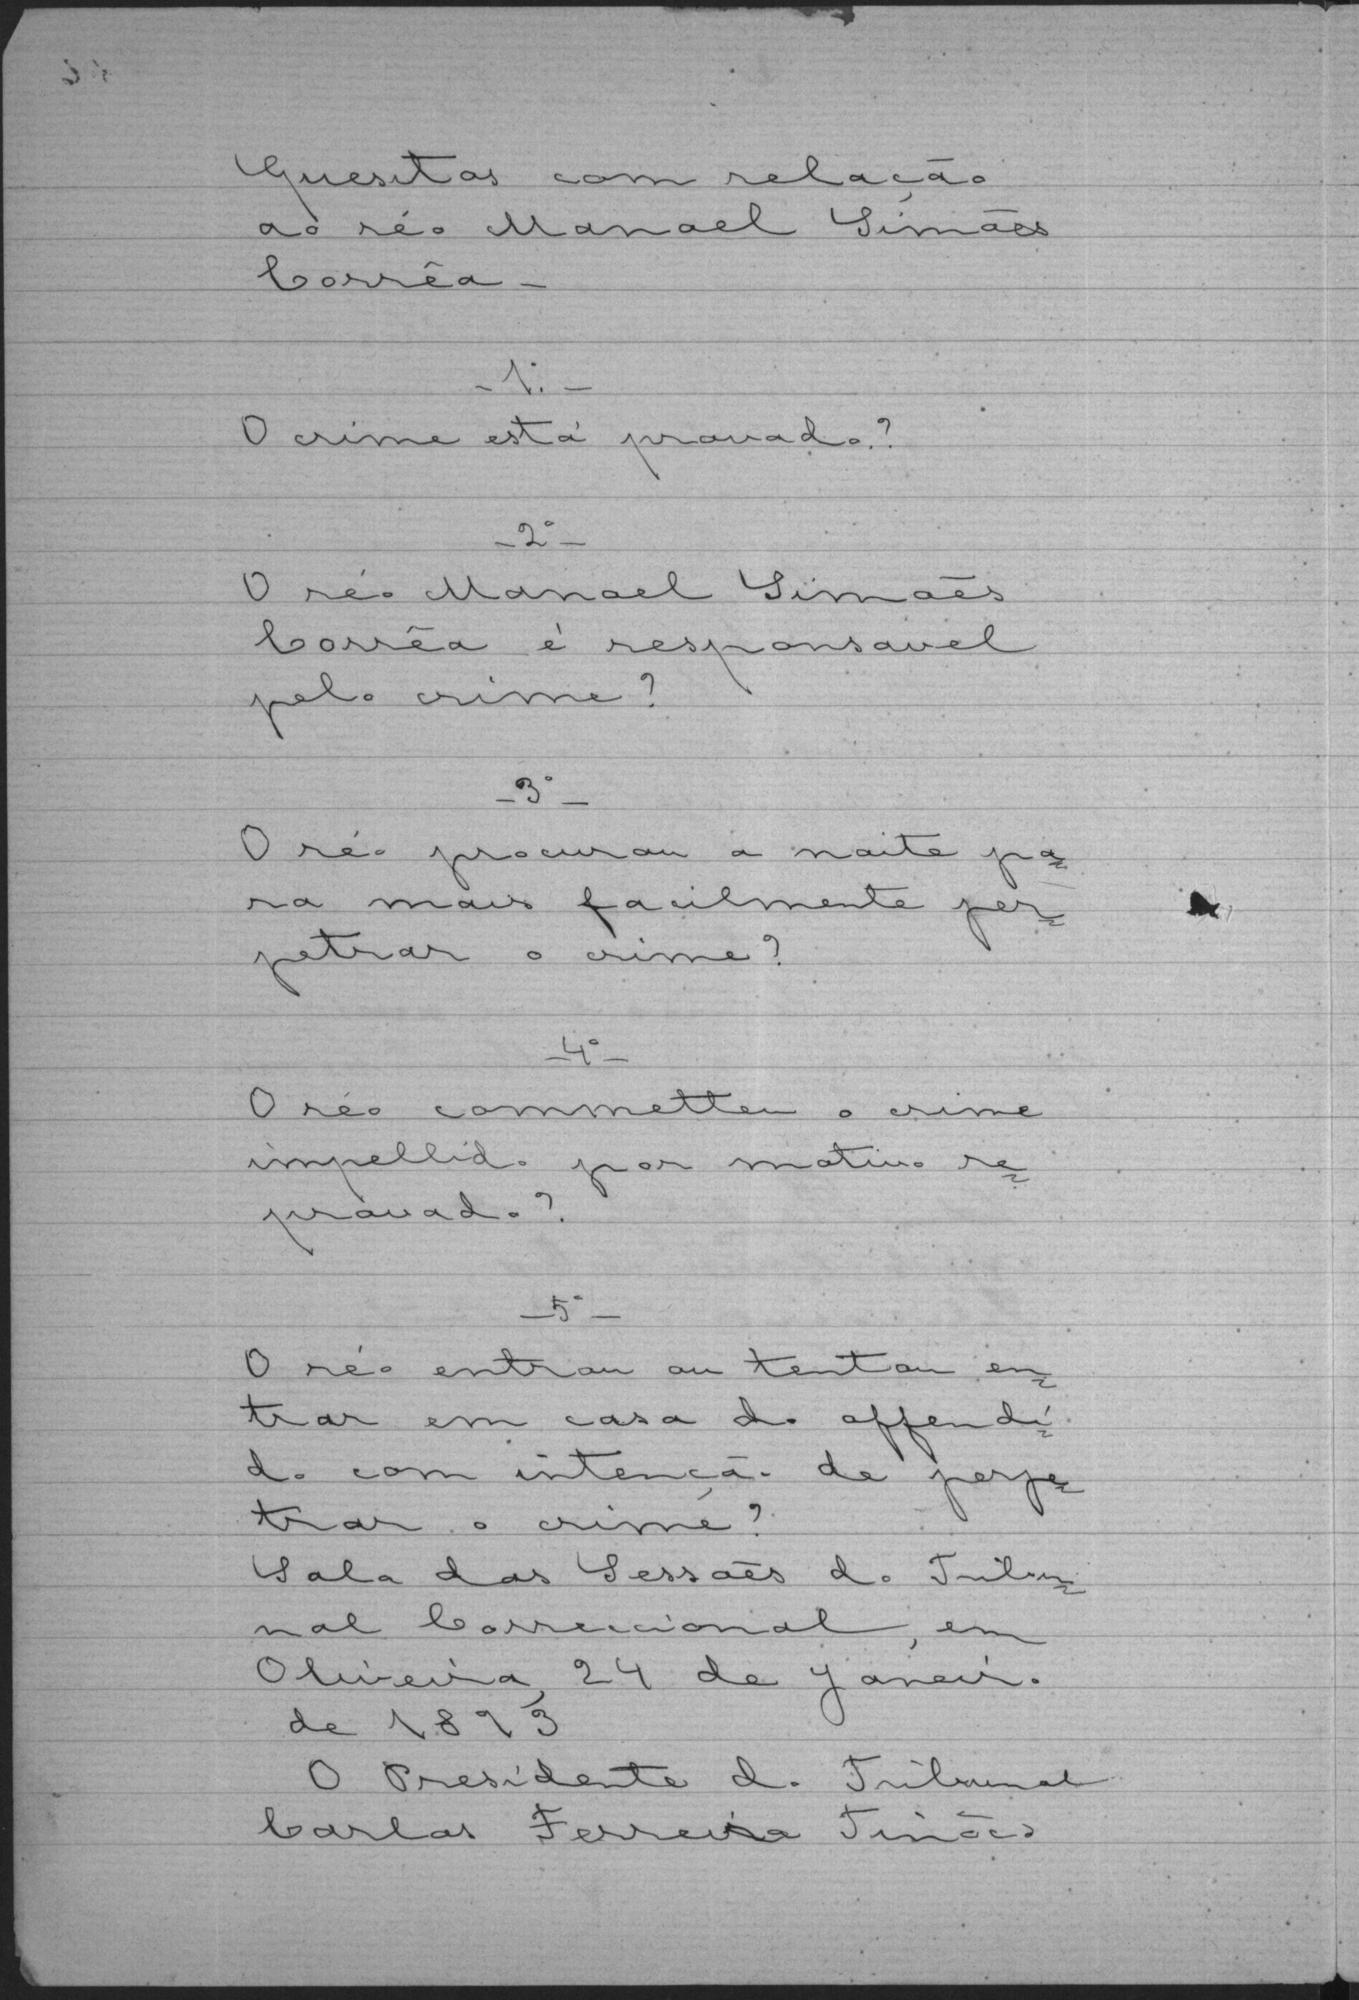 Quesitos com relação
ao réo Manoel Simões
Corrêa -
- 1º. -
O crime está provado?
- 2º -
O réo Manoel Simões
Corrêa é responsavel
pelo crime?
- 3º -
O réo procurou a noite pa=
ra mais facilmente per=
petrar o crime?
- 4º -
O réo commetteu o crime
impellido por motivo re=
provado?
- 5º -
O réo entrou ou tentou en=
trar em casa do offendi=
do com intenção de perpe=
trar o crime?
Sala das Sessões do Tribu=
nal Correccional, em
Oliveira, 24 de Janeiro
de 1893
O Presidente do Tribunal
Carlos Ferreira Tinôco